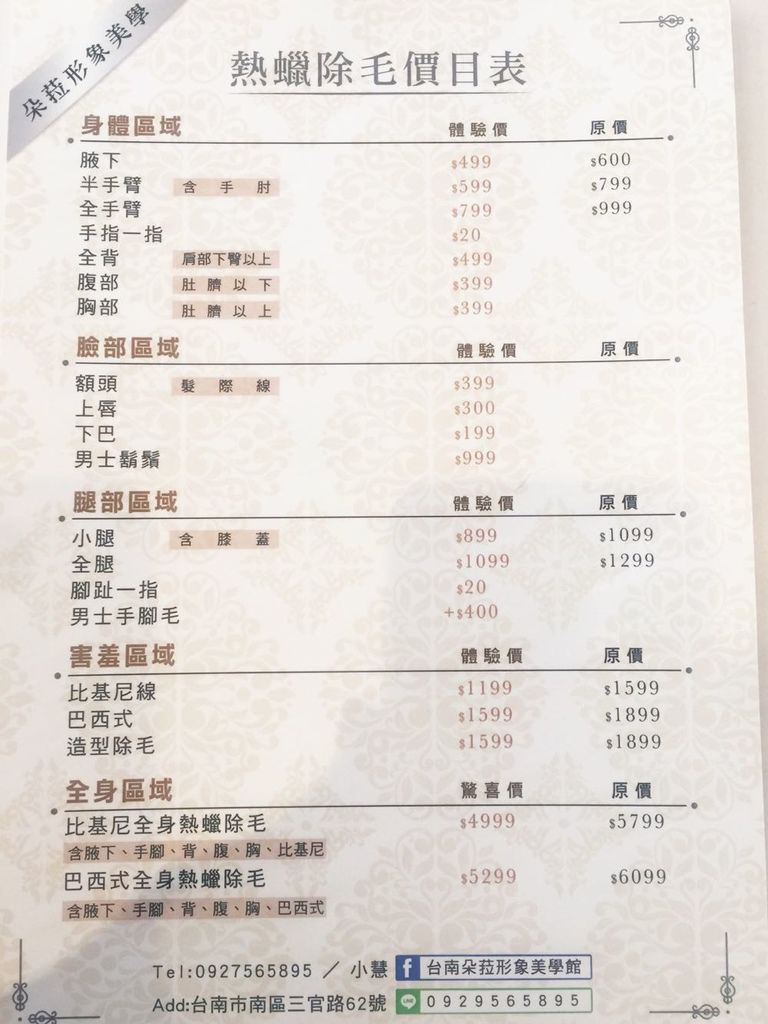 朵菈形象美學
熱蠟除毛價目表
身體區域 體驗價 原價
腋下 $499 $600
半手臂 含手肘 $599 $799
全手臂 $799 $999
手指一指 $20
全背 肩部下臀以上 $499
腹部 肚臍以下 $399
胸部 肚臍以上 $399
臉部區域 體驗價 原價
額頭 髮際線 $399
上唇 $300
下巴 $199
男士鬍鬚 $999
腿部區域 體驗價 原價
小腿 含膝蓋 $899 $1099
全腿 $1099 $1299
腳趾一指 $20
男士手腳毛 +$400
害羞區域 體驗價 原價
比基尼線 $1199 $1599
巴西式 $1599 $1899
造型除毛 $1599 $1899
全身區域 驚喜價 原價
比基尼全身熱蠟除毛 $4999 $5799
含腋下、手腳、背、腹、胸、比基尼
巴西式全身熱蠟除毛 $5299 $6099
含腋下、手腳、背、腹、胸、巴西式
Tel:0927565895 / 小慧 f 台南朵菈形象美學館
Add:台南市南區三官路62號 LINE 0929565895